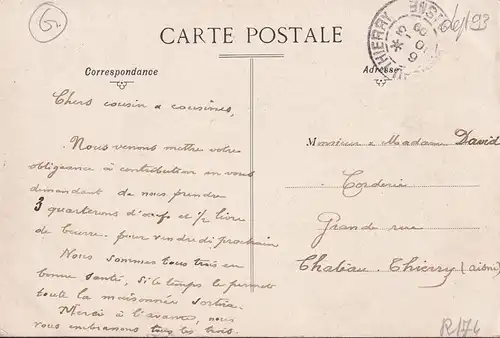 G.
CARTE POSTALE
THIERRY
AISNE
dep/93
Correspondance
Adresse
Chers cousin & cousines,
Nous venons mettre votre
obligeance à contribution en vous
demandant de nous prendre
3 quarterons d'œufs et 1/2 livre
de beurre pour vendredi prochain
Nous sommes tous trois en
bonne santé, si le temps le permet
toute la maisonnée sortira.
Merci à l'avance, nous
vous embrassons tous les trois.
Monsieur & Madame David
Corderie
Grande rue
Chateau-Thierry (Aisne)
R174